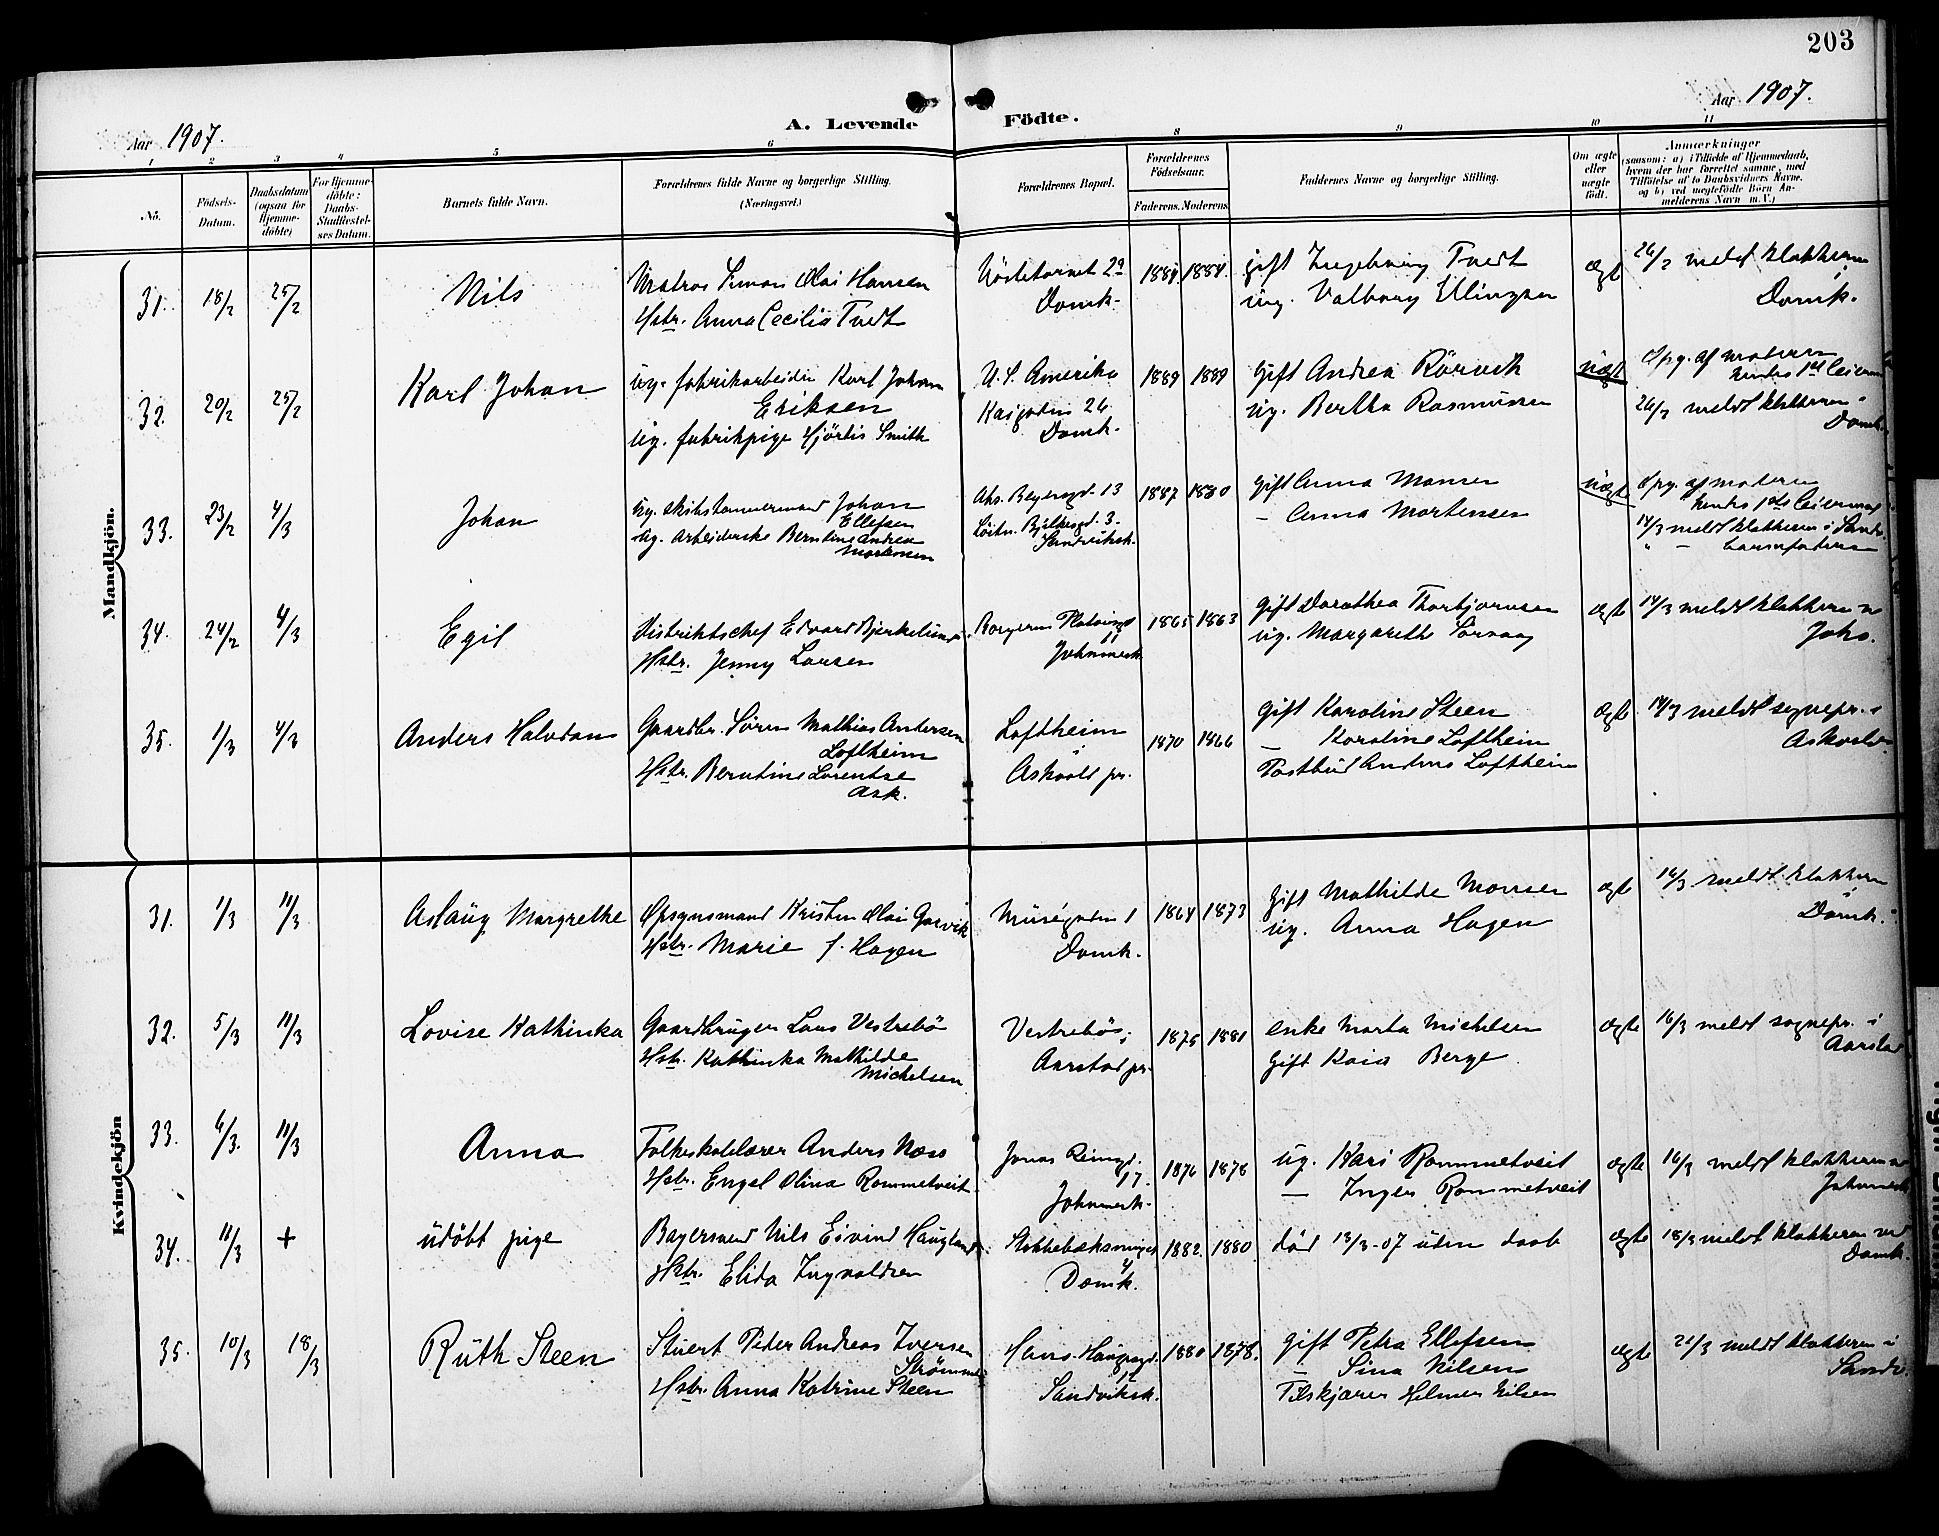 203
Aar 1907.
A. Levende Födte.
Aar 1907.
1 2 3 4 5 6 8 9 10 11
No.
Födsels-Datum.
Daabsdatum (ogsaa for Hjemme-döbte)
For Hjemme-döbte: Daabs-Stadfæstel-ses Datum.
Barnets fulde Navn.
Forældrenes fulde Navne og borgerlige Stilling.
(Næringsvei.)
Forældrenes Bopæl.
Forældrenes Födselsaar.
Faderens. Moderens.
Faddernes Navne og borgerlige Stilling.
Om ægte eller uægte födt.
Anmærkninger
(saasom: a) i Tilfælde af Hjemmedaab,
hvem der har forrettet samme, med
Tilföielse af to Daabsvidners Navne,
og b) ved uægtefödte Börn An-
melderens Navn m. V.)
Mandkjön.
31. 18/2 25/2 Nils
Matros Simon Olai Hansen
Hstr. Anna Cecilia Tvedt
Domk.
1884. 1884.
gift Ingeborg Tvedt
ug. Valborg Ellingsen
ægte
26/2 meldt klokkeren i
Domk.
32. 20/2 25/2 Karl Johan
ug. fabrikarbeider Karl Johan
Eriksen
ug. fabrikpige Hjördis Smith
U. S. Amerika
Kaigaden 26
Domk.
1889 1889
Gift Andrea Rörvik
ug. Bertha Rasmussen
uægte
Opg. af moderen
26/2 meldt klokkeren i
Domk.
33. 23/2 4/3 Johan
ug. skibstømmermand Johan
Ellefsen
ug. arbeiderske Berntine Andrea
Mortensen
Sandviksk.
1887 1880
Gift Anna Monsen
— Anna Mortensen
uægte
Opg. af moderen
14/3 meldt klokkeren i Sandv.
" — barnefaderen
34. 24/2 4/3 Egil
Distriktschef Edvard Bjerkelund
Hstr. Jenny Larsen
11
Johannesk.
1865 1863
Gift Dorothea Thorbjørnsen
ug. Margarethe
ægte
14/3 meldt klokkeren v
Johs.
35. 1/3 4/3 Anders Halvdan
Gaardbr. Sören Mathias Andersen
Loftheim
Hstr. Berntine Lorentse
Ask.
Loftheim
Askvold pr.
1870 1866
Gift Karoline Steen
— Karoline Loftheim
Postbud Anders Loftheim
ægte
14/3 meldt sognepr. i
Askvold
Kvindekjön
31. 1/3 11/3 Aslaug Margrethe
Opsynsmand Kristen Olai Garvik
Hstr. Marie f. Hagen
Muségaden 1
Domk.
1864 1873
Gift Mathilde Monsen
ug. Anna Hagen
ægte
16/3 meldt klokkeren i
Domk.
32. 5/3 11/3 Lovise Kathinka
Gaardbruger Lars Vestrebö
Hstr. Kathinka Mathilde
Michelsen
Vestrebö i
Aarstad pr.
1875 1881
enke Marta Michelsen
Gift Kaia Berge
ægte
16/3 meldt sognepr. i
Aarstad
33. 6/3. 11/3 Anna
Folkeskolelærer Anders Næss
Hstr. Engel Olina Rommetveit
Jonas Reinsgd.
17.
Johannesk.
1876 1878
ug. Kari Rommetveit
— Inger Rommetveit
ægte
16/3 meldt klokkeren v
Johannesk
34. 11/3 + udöbt pige
Bagersvend Nils Eivind Haugland
Hstr. Elida Ingvaldsen
4
Domk.
1882. 1880.
död 13/3-07 uden daab
ægte
18/3 meldt klokkeren ved
Domk.
35. 10/3 18/3 Ruth Steen
Stuert Peder Andreas Iversen
Strömme
Hstr. Anna Katrine Steen
Hans Haugesgd.
Sandviksk.
1880 1878.
gift Petra Ellefsen
— Sina Nilsen
Tilskjærer Helmer Nilsen
ægte
21/3 meldt klokkeren i
Sandv.